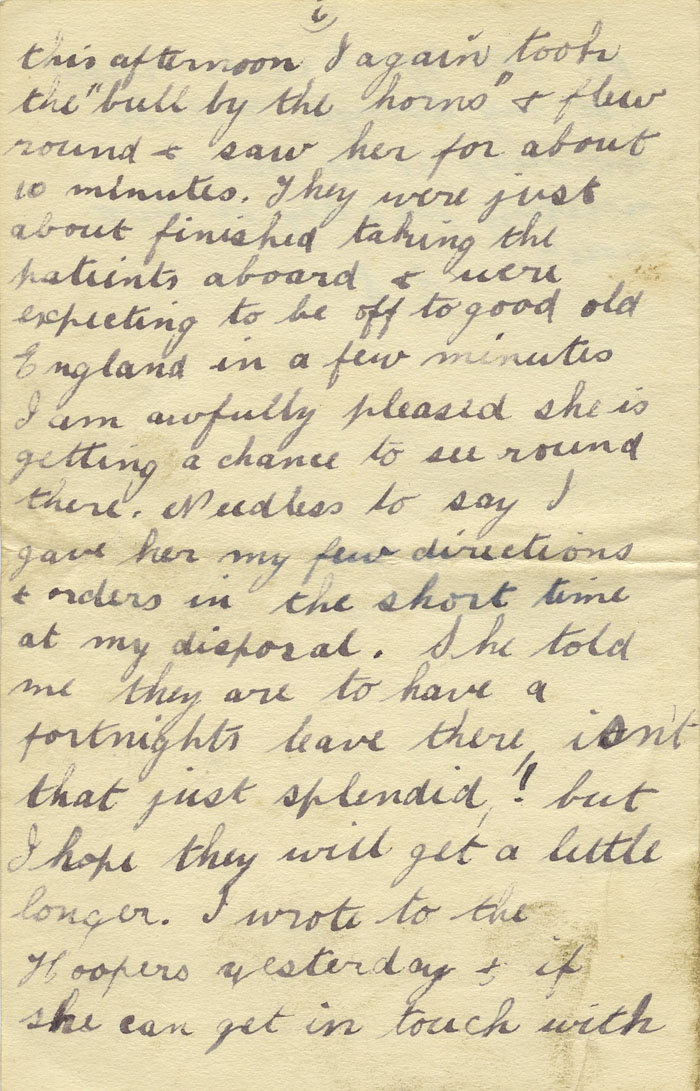 6
this afternoon I again took
the "bull by the horns" & flew
round & saw her for about
10 minutes. They were just
about finished taking the
patients aboard & were
expecting to be off to good old
England in a few minutes
I am awfully pleased she is
getting a chance to see round
there. Needless to say I
gave her my few directions
& orders in the short time
at my disposal. She told
me they are to have a
fortnights leave there, isn't
that just splendid,! but
I hope they will get a little
longer. I wrote to the
Hoopers yesterday & if
she can get in touch with